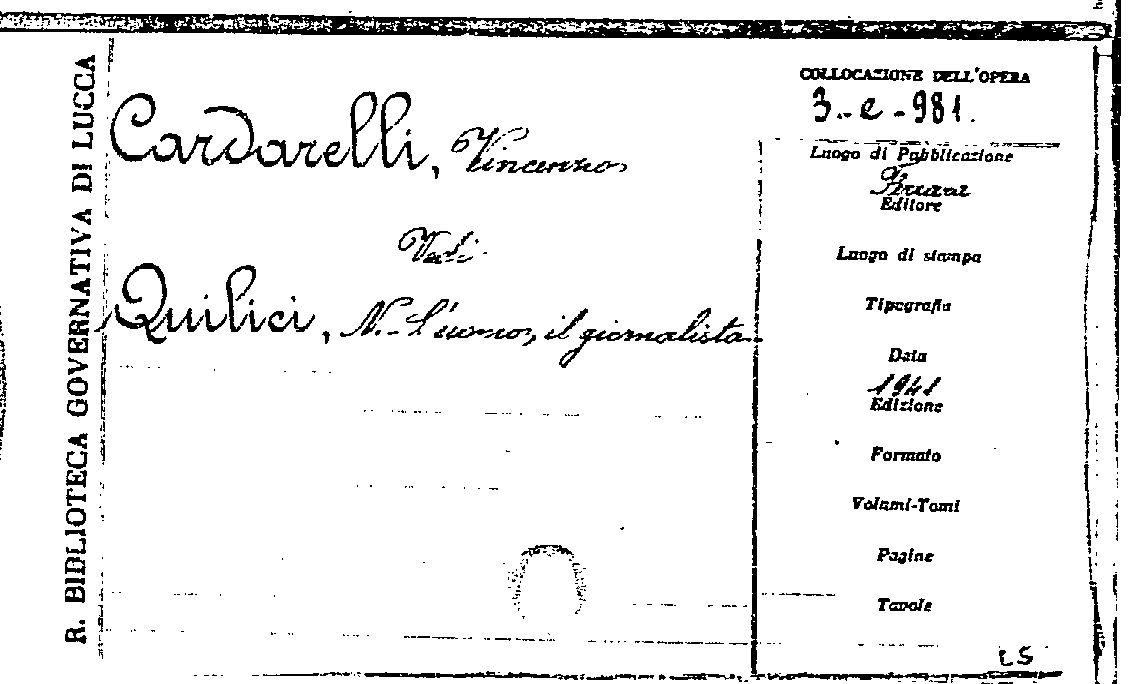 R. BIBLIOTECA GOVERNATIVA DI LUCCA
Cardarelli, Vincenzo
Vedi
Quilici, N. - L'uomo, il giornalista
COLLOCAZIONE DELL'OPERA
3.-e-981.
Luogo di Pubblicazione
Editore
Luogo di stampa
Tipografia
Data
1941
Edizione
Formato
Volumi-Tomi
Pagine
Tavole
LS